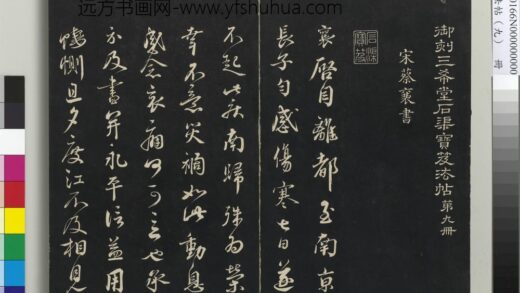 远方书画网-www.yfshuhua.com
御刻三希堂石渠寶笈法帖第九冊
宋蔡襄書
石渠寶笈
襄啓自離都至南京
長子勻感傷寒七日遂
不起此疾南歸殊為榮
幸不意災禍如此動息
感念哀痛何可言也承
示及書并永平信益用
悽惻旦夕度江不及相見
帖(九) 冊
0166N000000000